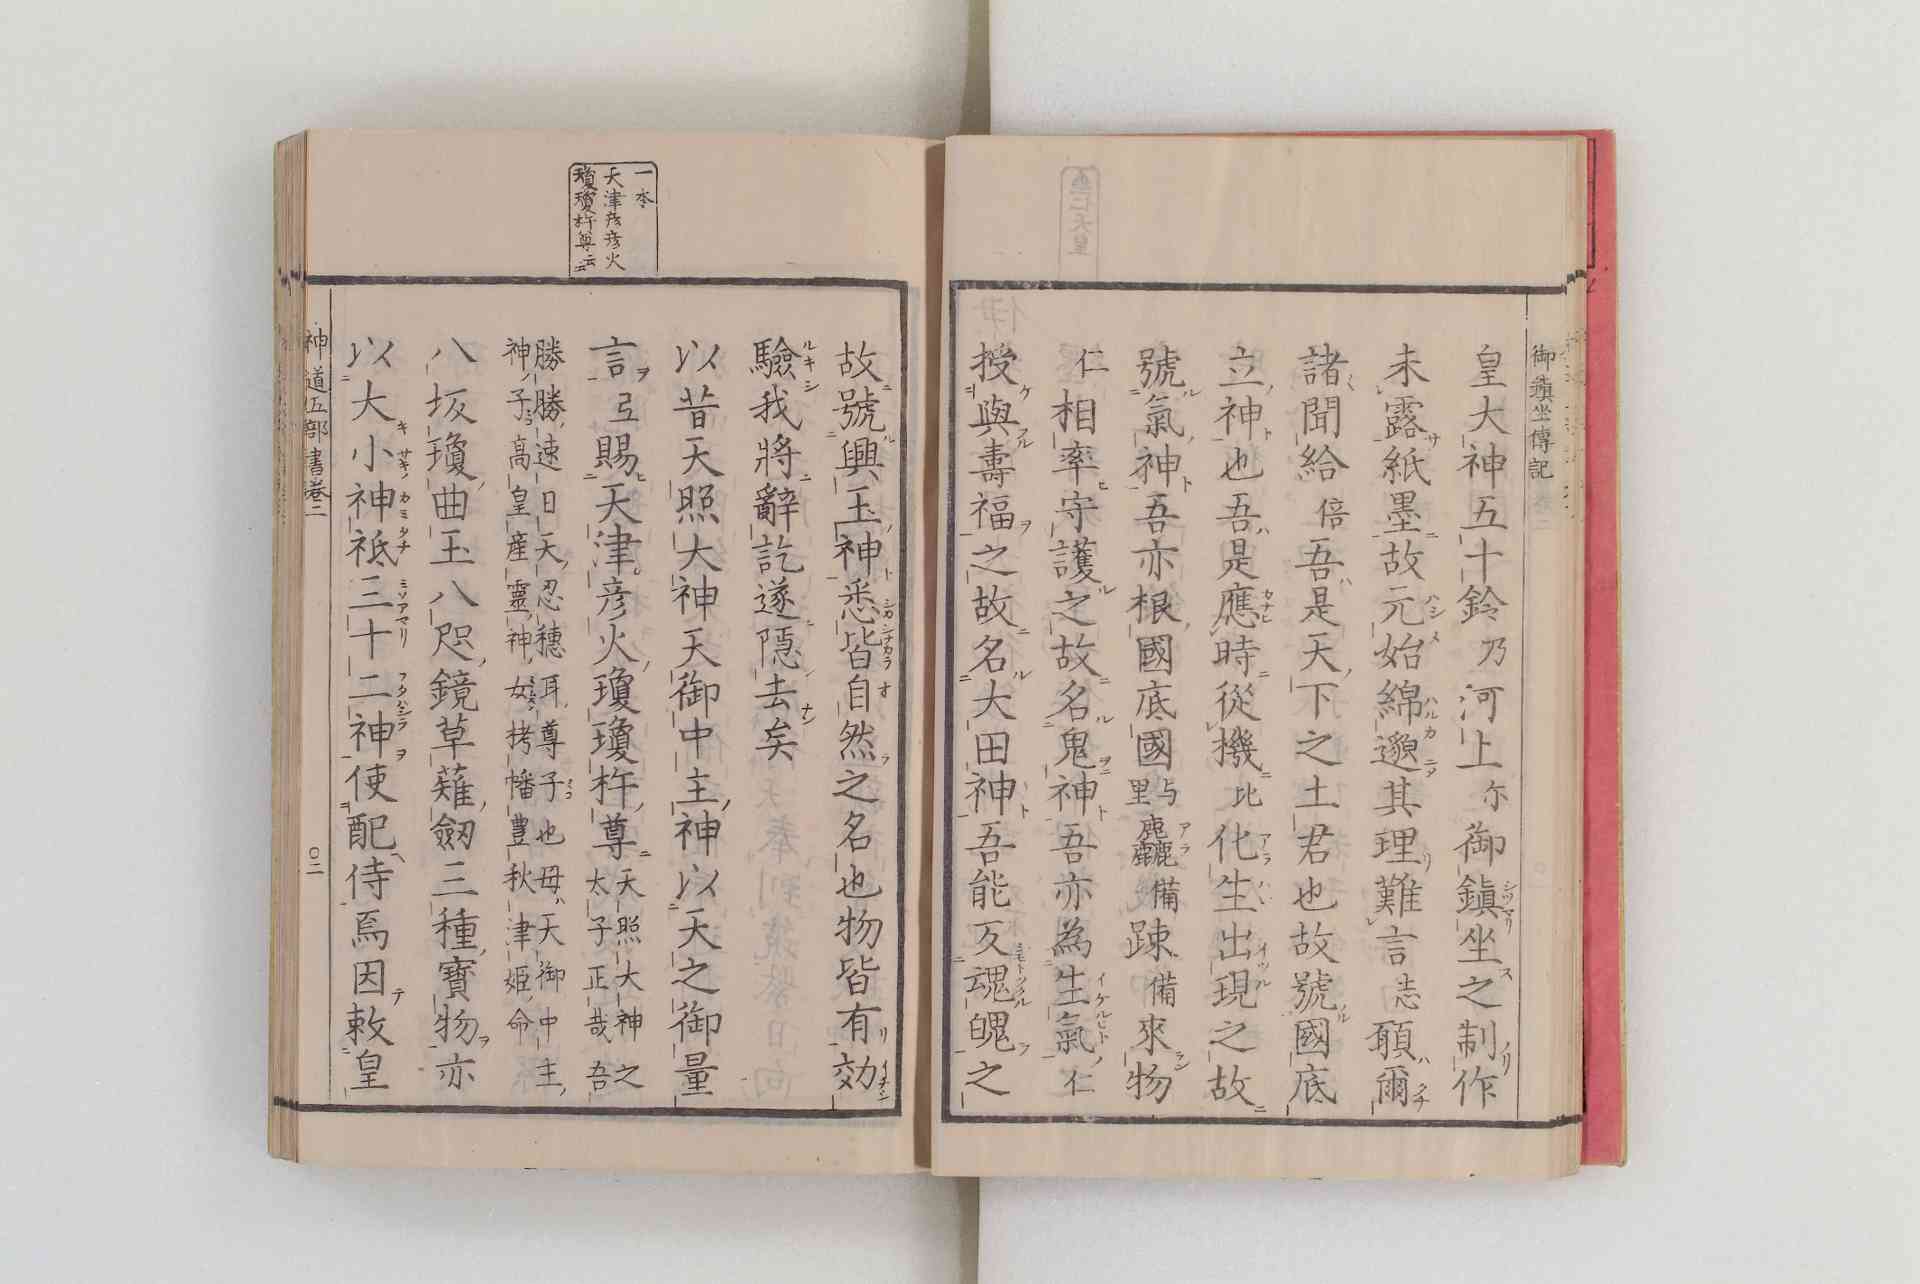 御鎮坐傳記
皇大神五十鈴乃河上尓御鎮坐之制作
未露紙墨故元始綿邈其理難言志願爾
諸聞給倍吾是天下之土君也故號國底
立神也吾是應時從機比化生出現之故
號氣神吾亦根國底國与里麁備疎備來物
仁相率守護之故名鬼神吾亦為生氣仁
授與壽福之故名大田神吾能反魂魄之
故號興玉神悉皆自然之名也物皆有効
驗我將辭訖遂隱去矣
以昔天照大神天御中主神以天之御量
言弖賜天津彦火瓊瓊杵尊天照大神之太子正哉吾
勝勝速日天忍穗耳尊子也母天御中主
神子高皇産靈神女栲幡豊秋津姫命
八坂瓊曲玉八咫鏡草薙劔三種寶物亦
以大小神祇三十二神使配侍焉因敕皇
神道五部書巻二
〇二
一本
天津彦彦火
瓊瓊杵尊云云